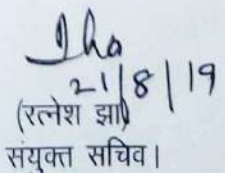 Jha
21/8/19
(रत्नेश झा)
संयुक्त सचिव।